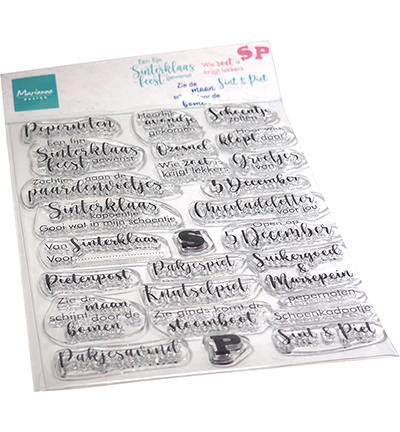 Marianne
DESIGN
Een fijn
Sinterklaas
feest gewenst
Wie zoet is
krijgt lekkers
SP
Zie de
maan
Sint & Piet
door de
bomen
Pepernoten
Een fijn
Sinterklaas
feest gewenst
Zachtjes gaan de
paardenvoetjes
Sinterklaas
kapoentje
Gooi wat in mijn schoentje
Van Sinterklaas
Voor
Pietenpost
Zie de
maan
schijnt door de
bomen
Pakjesavond
Heerlijk
avondje
gekomen
Ozosnel
Wie zoet is
krijgt lekkers
S
Pakjespiet
Knutselpiet
Zie ginds komt de
stoomboot
P
Schoentje
zetten
klopt daar
Groetjes
van
5 December
Chocoladeletter
voor jou
5 December
Suikergoed
&
Marsepein
pepernoten
Schoenkadootje
Sint & Piet